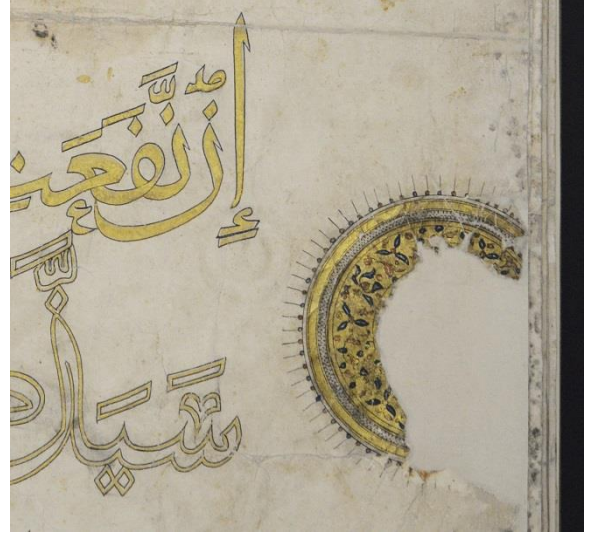 إِن نَّفَعَت
سَيَذَّ